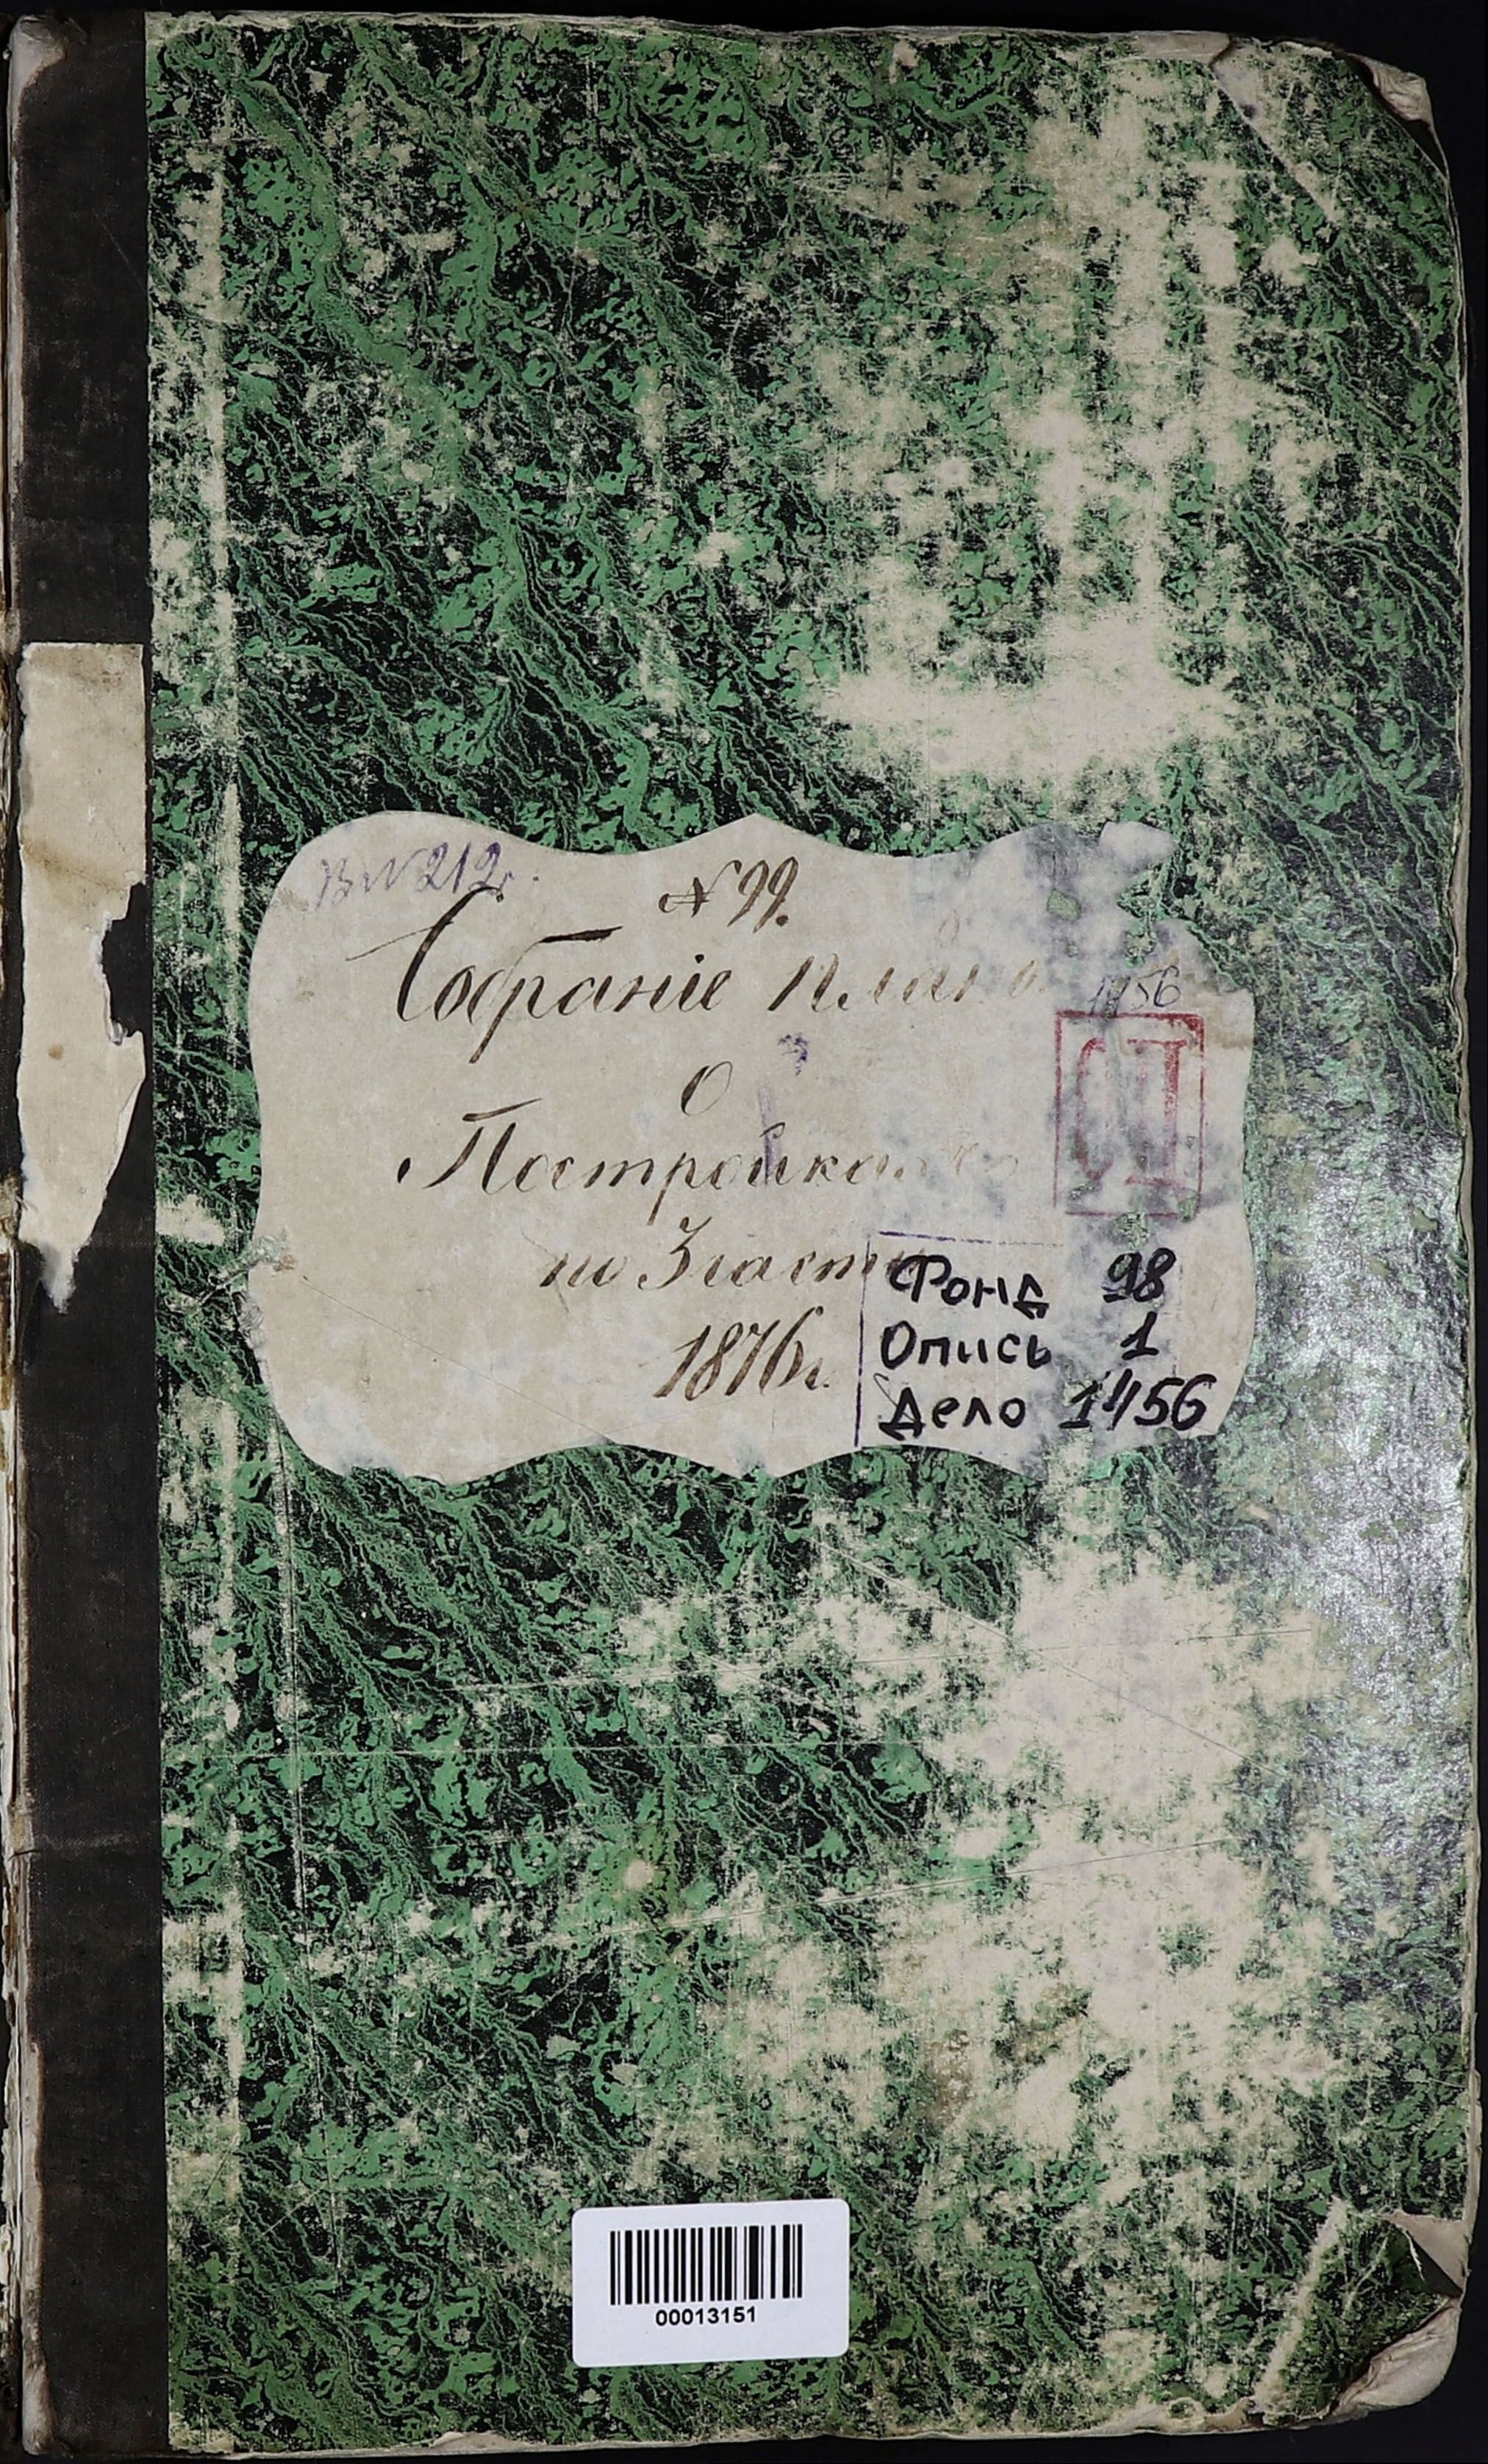 № 212.
№ 99.
Собраніе План
1456
О
Постройка
по 3 части
1876 г.
Фонд 98
Опись 1
Дело 1456
00013151